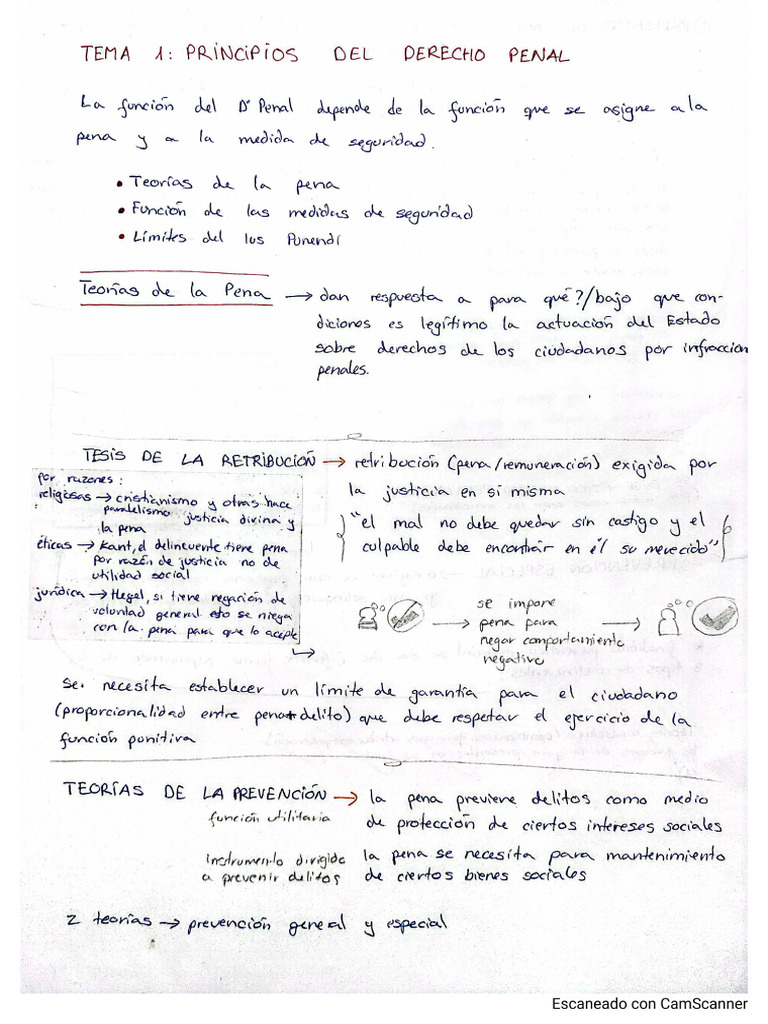 TEMA 1: PRINCIPIOS DEL DERECHO PENAL
La función del Dº Penal depende de la función que se asigne a la
pena y a la medida de seguridad.
• Teorías de la pena
• Función de las medidas de seguridad
• Límites del Ius Punendi
Teorías de la Pena → dan respuesta a para qué?/bajo que con-
diciones es legítimo la actuación del Estado
sobre derechos de los ciudadanos por infraccion
penales.
TESIS DE LA RETRIBUCIÓN → retribución (pena/remuneración) exigida por
la justicia en sí misma
"el mal no debe quedar sin castigo y el
culpable debe encontrar en él su merecido"
por razones:
religiosas → cristianismo y otras hace
paralelismo justicia divina y
la pena
éticas → Kant, el delincuente tiene pena
por razón de justicia no de
utilidad social
jurídica → Hegel, si tiene negación de
voluntad general esto se niega
con la pena para que lo acepte
se impone
pena para
negar comportamiento
negativo
se necesita establecer un límite de garantía para el ciudadano
(proporcionalidad entre pena+delito) que debe respetar el ejercicio de la
función punitiva
TEORÍAS DE LA PREVENCIÓN → la pena previene delitos como medio
función utilitaria
de protección de ciertos intereses sociales
instrumento dirigido
a prevenir delitos
la pena se necesita para mantenimiento
de ciertos bienes sociales
2 teorías → prevención general y especial
Escaneado con CamScanner